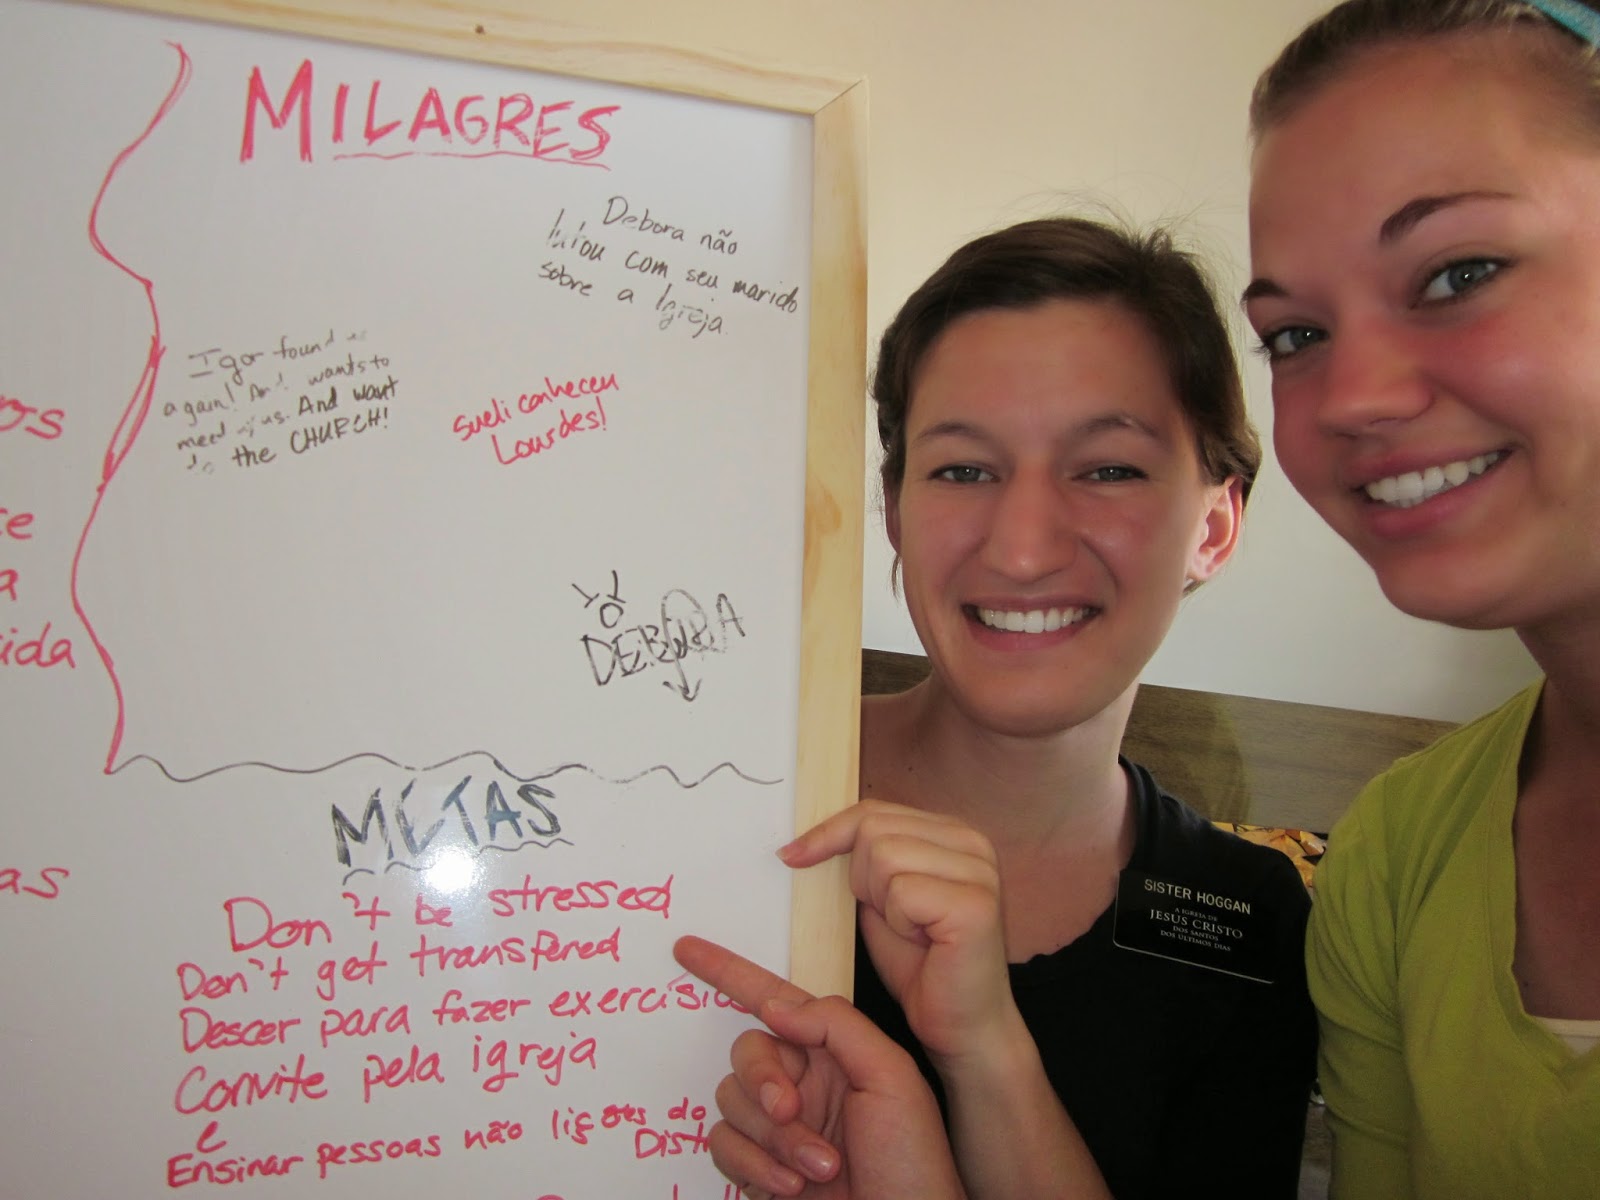 MILAGRES
Debora não
lutou com seu marido
sobre a Igreja.
Igor found
again! And wants to
meet us. And want
the CHURCH!
sueli conheceu
Lourdes!
os
te
a
cida
as
METAS
Don't be stressed
Don't get transfered
Descer para fazer
Convite pela igreja
e
Ensinar pessoas não do
Distr
SISTER HOGGAN
A IGREJA DE
JESUS CRISTO
DOS SANTOS
DOS ÚLTIMOS DIAS